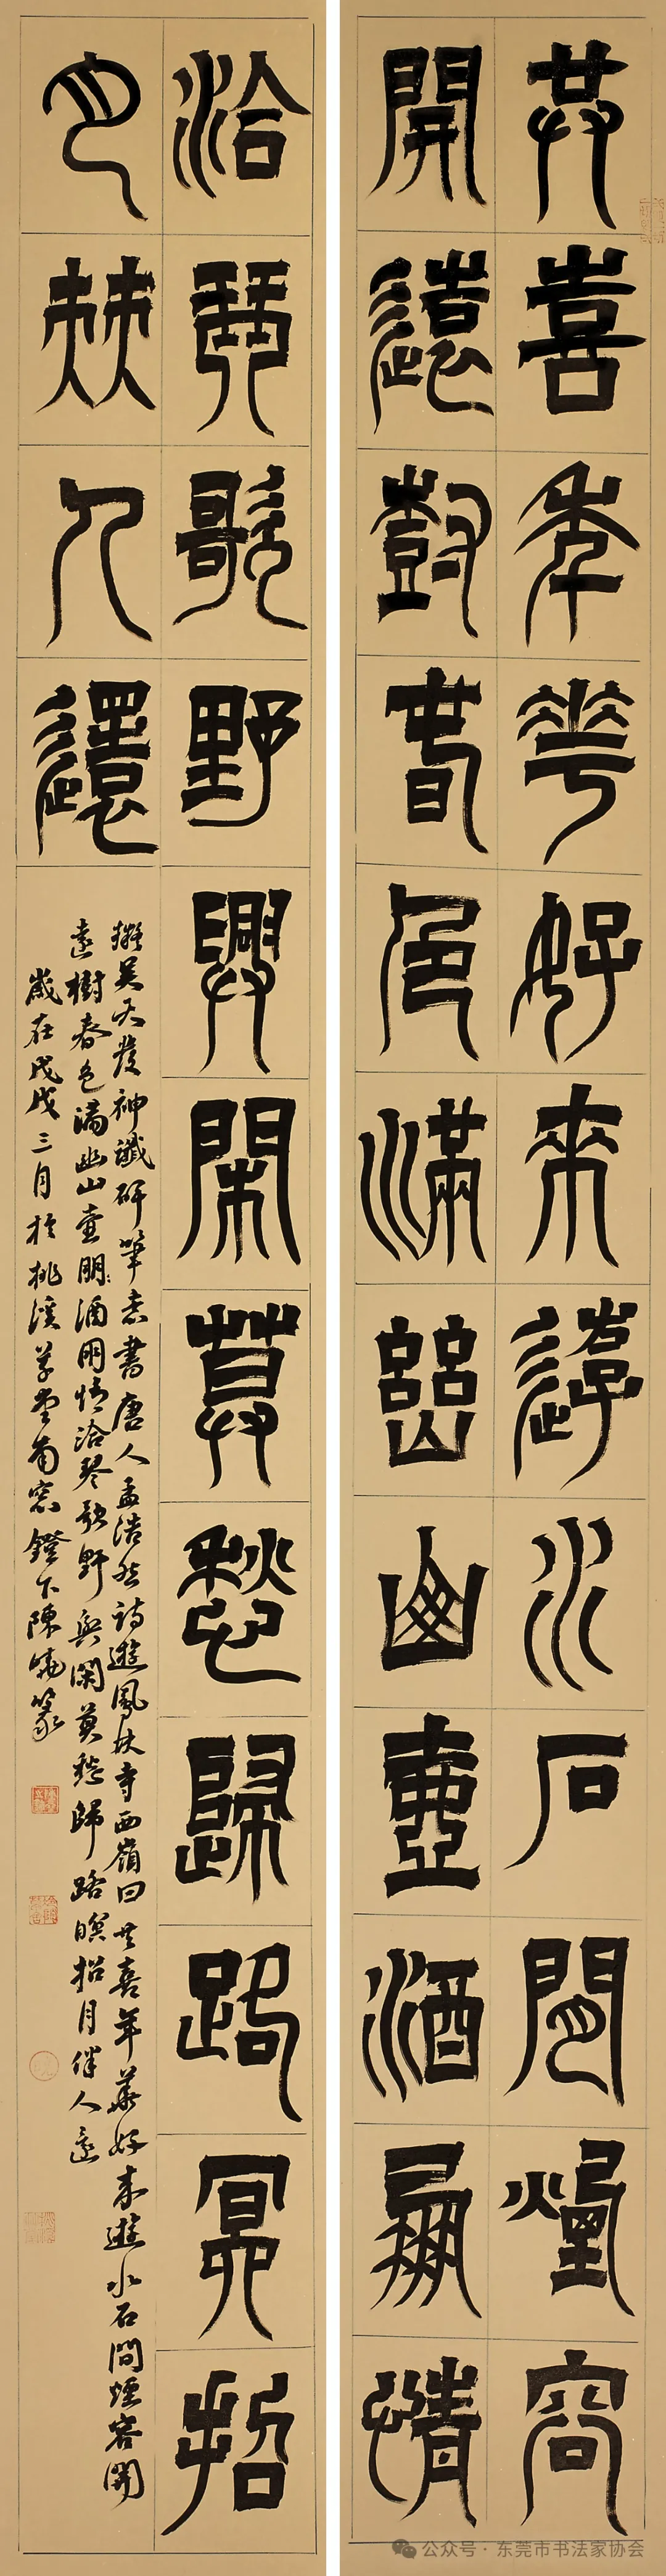 共喜年華好來遊水石間煙容
開遠尌春色滿幽山壺酒朋情
洽琴歌野興閑莫愁歸路冥招
月㚘人還
擬吳天發神讖碑筆意書唐人孟浩然詩遊鳳林寺西嶺曰共喜年華好來遊水石間煙容開
遠樹春色滿幽山壺朋酒朋情洽琴歌野興閑莫愁歸路暝招月伴人還
歲在戊戌三月於桃溪草堂南窗鐙下陳曉篆
公众号 · 东莞市书法家协会